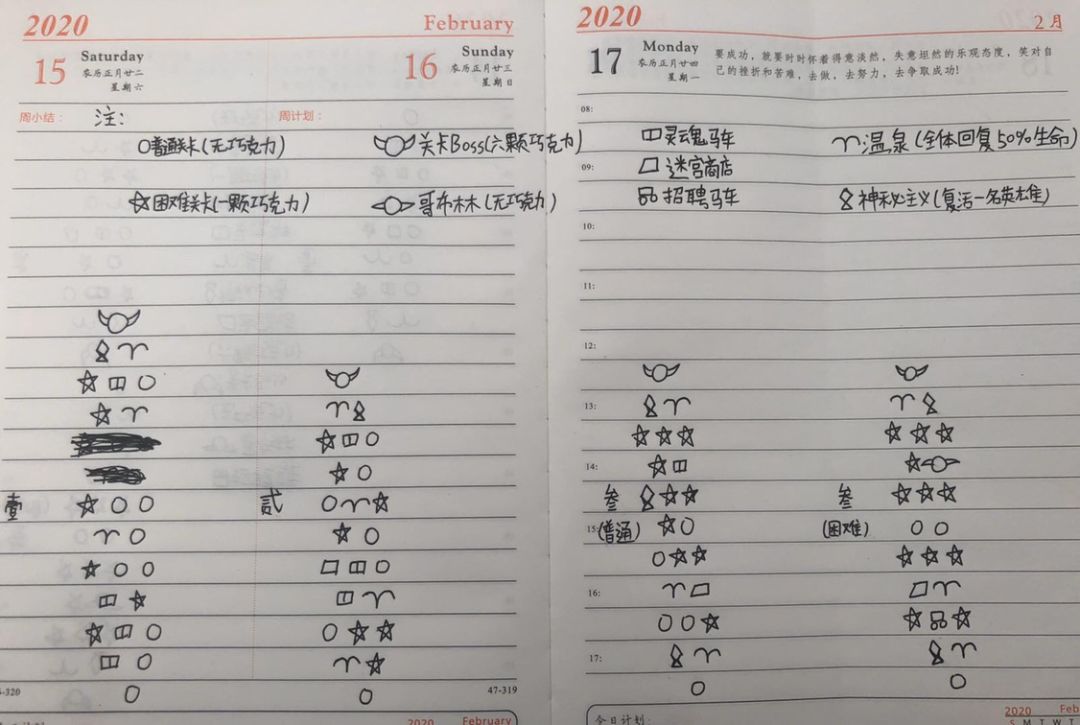 2020 February
15 Saturday 农历正月廿二 星期六
16 Sunday 农历正月廿三 星期日
周小结： 注: 周计划：
普通关卡(无巧克力) 关卡Boss(六颗巧克力)
困难关卡(一颗巧克力) 哥布林(无巧克力)
壹 贰
46-320 47-319
2020 February
2020 2月
17 Monday 农历正月廿四 星期一
要成功，就要时时怀着得意淡然，失意坦然的乐观态度，笑对自
己的挫折和苦难，去做，去努力，去争取成功!
08:
灵魂马车 温泉(全体回复50%生命)
09:
迷宫商店
招聘马车 神秘主义(复活一名英雄)
10:
11:
12:
13:
14:
叁 叁
15:
(普通) (困难)
16:
17:
今日计划:
2020 Feb
S M T W T